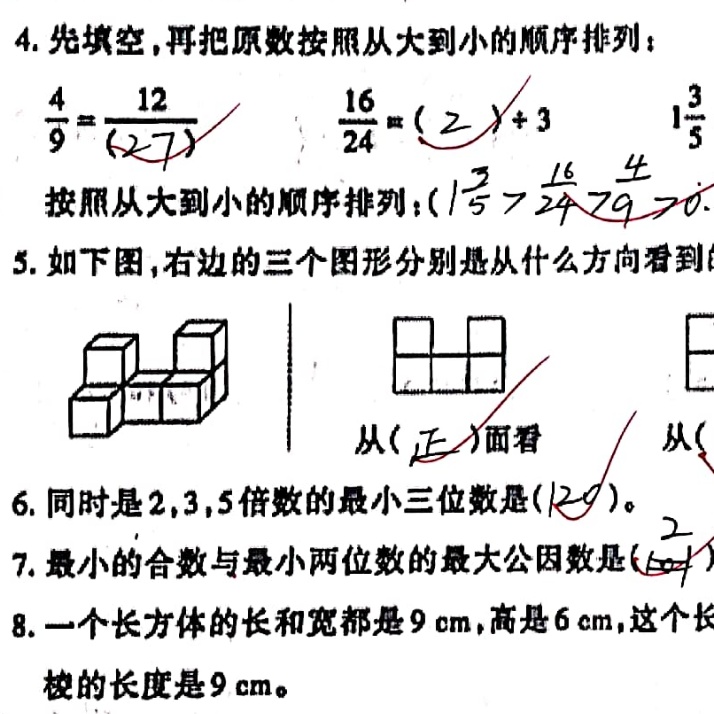 4. 先填空,再把原数按照从大到小的顺序排列:
4/9 = 12/(27) 16/24 = ( 2 ) ÷ 3 1 3/5
按照从大到小的顺序排列:(1 3/5 > 16/24 > 4/9 > 0.
5. 如下图,右边的三个图形分别是从什么方向看到
从( 正 )面看 从(
6. 同时是2,3,5倍数的最小三位数是(120)。
7. 最小的合数与最小两位数的最大公因数是( 2 )
8. 一个长方体的长和宽都是9 cm,高是6 cm,这个长
棱的长度是9 cm。